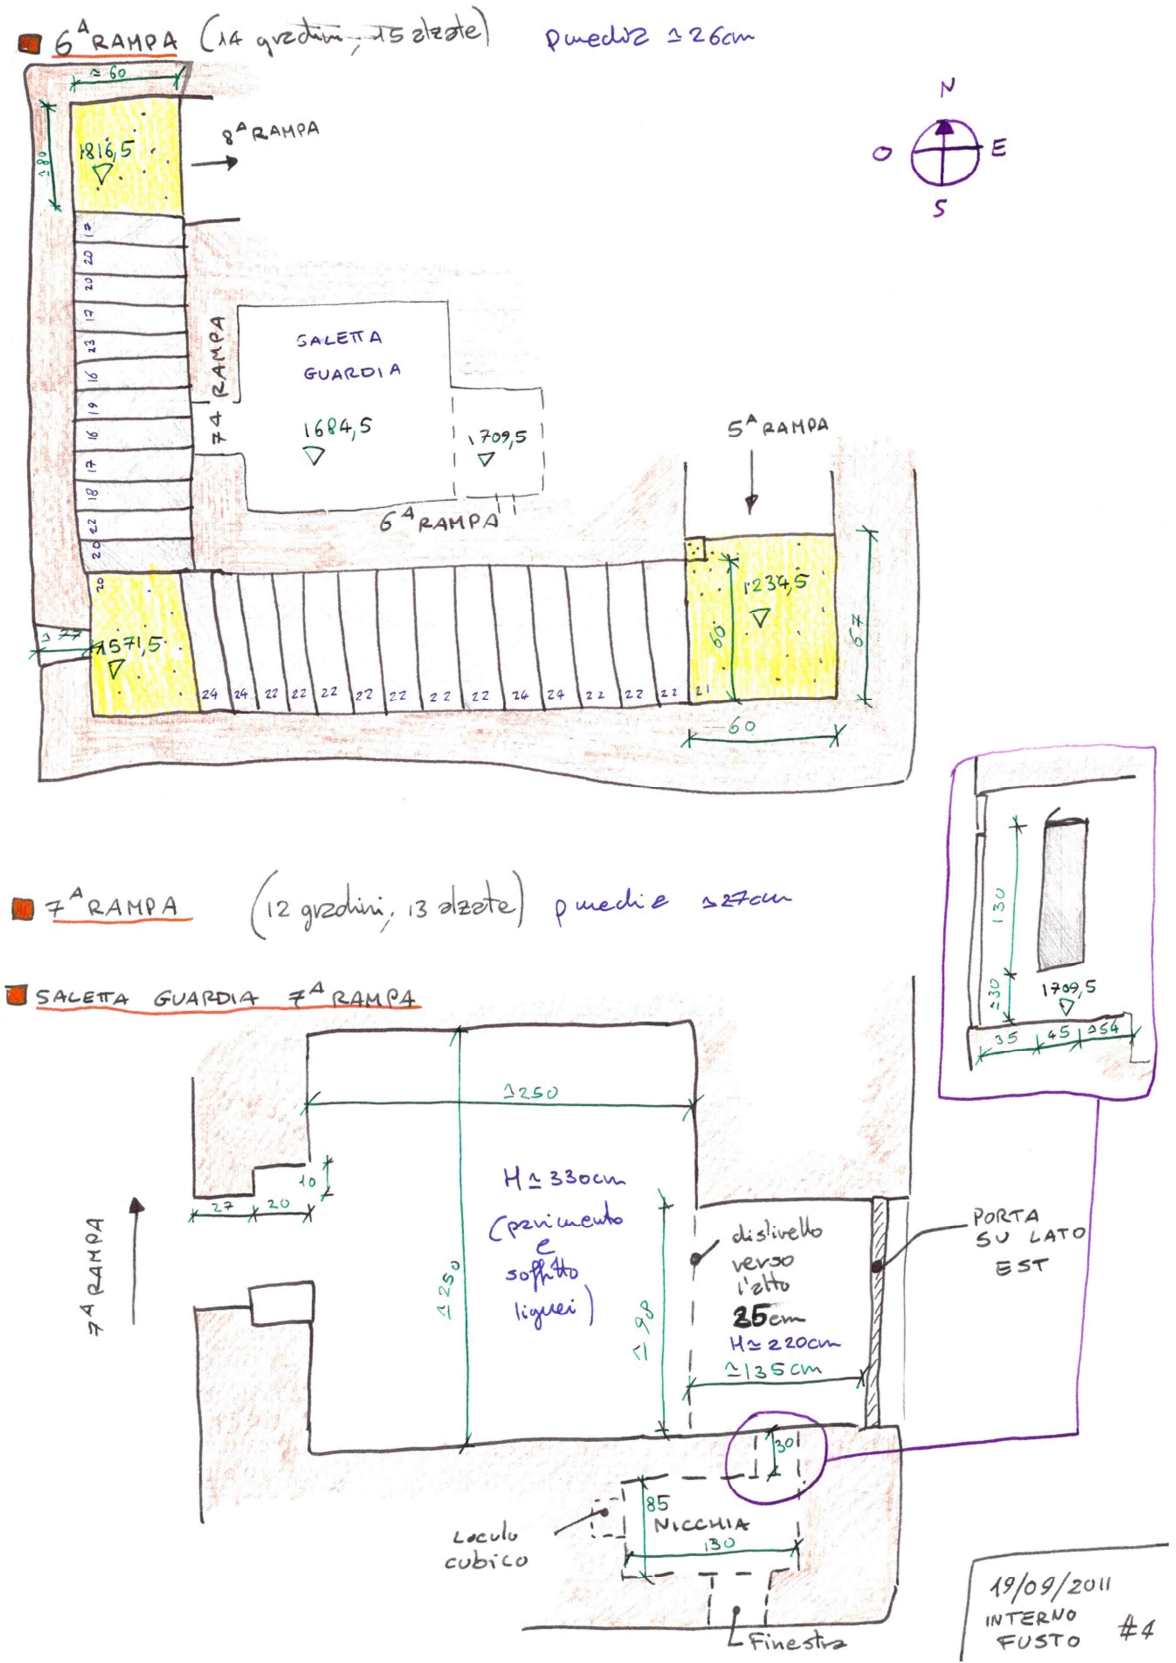 6ᴬ RAMPA (14 gradini, 15 alzate) p media ≃ 26cm
≃ 60
N
O E
S
1816,5
8ᴬ RAMPA
≃80
17
20
20
17
23
16
19
16
17
18
22
20
20
7ᴬ RAMPA
SALETTA
GUARDIA
1684,5
1709,5
6ᴬ RAMPA
5ᴬ RAMPA
1234,5
60
67
≃ 77
1571,5
24 24 22 22 22 22 22 22 22 24 24 22 22 22 21
60
7ᴬ RAMPA (12 gradini, 13 alzate) p media ≃27cm
130
≃30
1709,5
35 45 ≃54
SALETTA GUARDIA 7ᴬ RAMPA
≃250
10
27 20
H ≃ 330cm
(pavimento
e
soffitto
lignei)
≃ 250
≃ 98
7ᴬ RAMPA
dislivello
verso
l'alto
25cm
H≃220cm
≃135cm
PORTA
SU LATO
EST
30
85
NICCHIA
130
Loculo
cubico
Finestra
19/09/2011
INTERNO
FUSTO #4